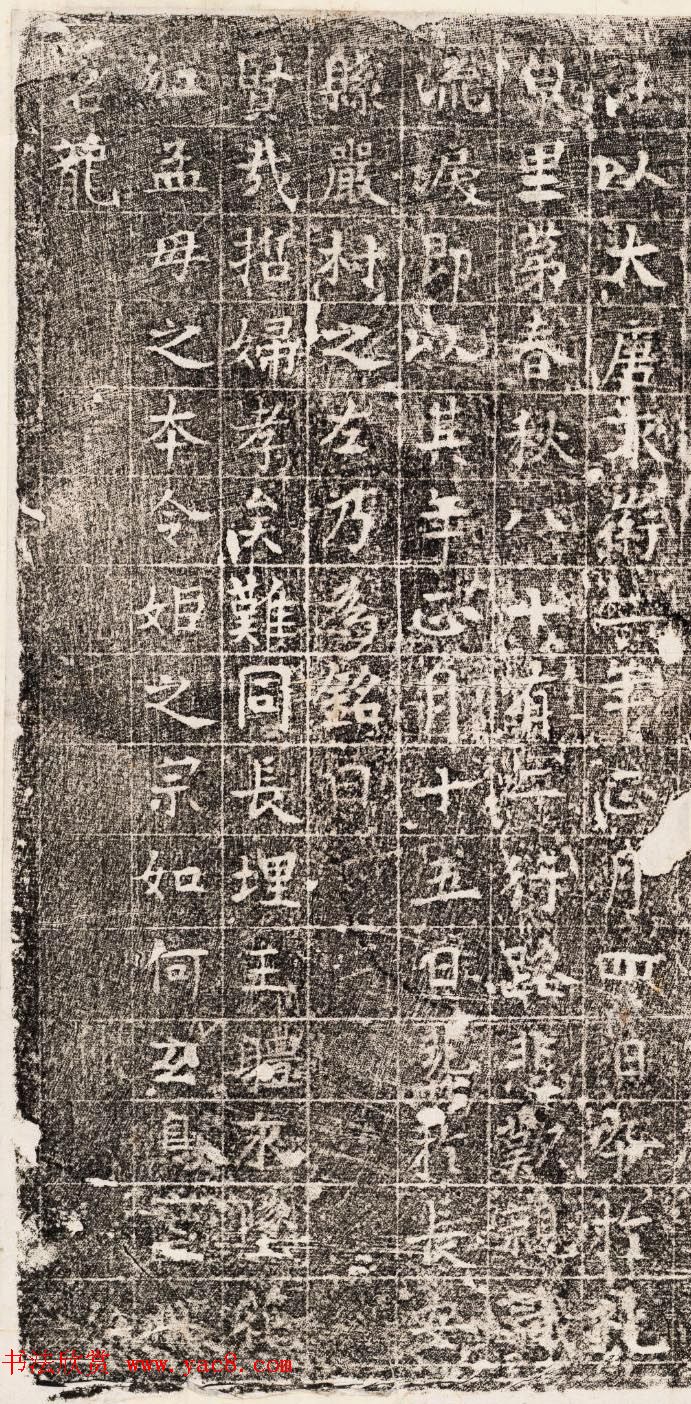 以大唐永淳二年正月四日卒於私
里第春秋八十有二行路非歎親
流涙即以其年正月十五日死於長安
縣嚴村之左乃為銘曰
賢哉哲婦孝矣難同長埋玉體永墜
紅孟母之本令姫之宗如何
名花
书法欣赏 www.yac8.com